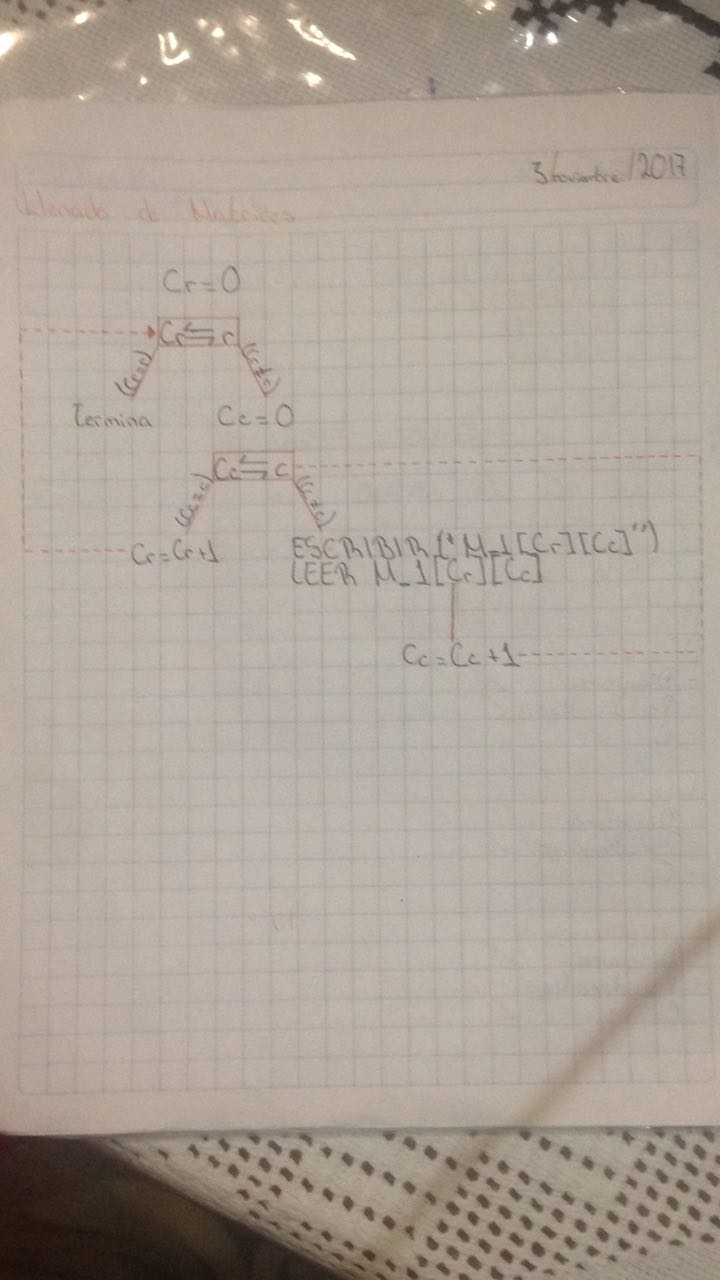 3/noviembre/2017
Llenado de Matrices
Cr=0
Cr⇆r
(Cr=r) (Cr≠r)
Termina Cc=0
Cc⇆c
(Cc=c) (Cc≠c)
Cr=Cr+1 ESCRIBIR ("M_1[Cr][Cc]")
LEER M_1[Cr][Cc]
Cc=Cc+1